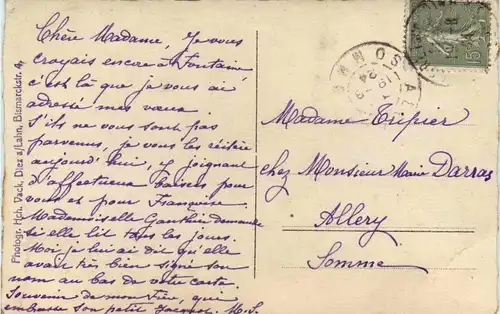 Chère Madame, Je vous
croyais encore à Fontaine
c'est là que je vous ai
adressé mes vœux.
S'ils ne vous sont pas
parvenus, je vous les réitère
aujourd'hui, y joignant
d'affectueux baisers pour
vous et pour Françoise.
Mademoiselle Gauthier demande
si elle lit tous les jours.
Moi je lui ai dit qu'elle
avait très bien signé son
nom au bas de votre carte.
Souvenir de mon Père, qui
embrasse son petit Jacquot. M. S.
Madame Tripier
chez Monsieur Marie Darras
Allery
Somme
Photogr. Hch. Vack, Diez a/Lahn, Bismarckstr. 4.